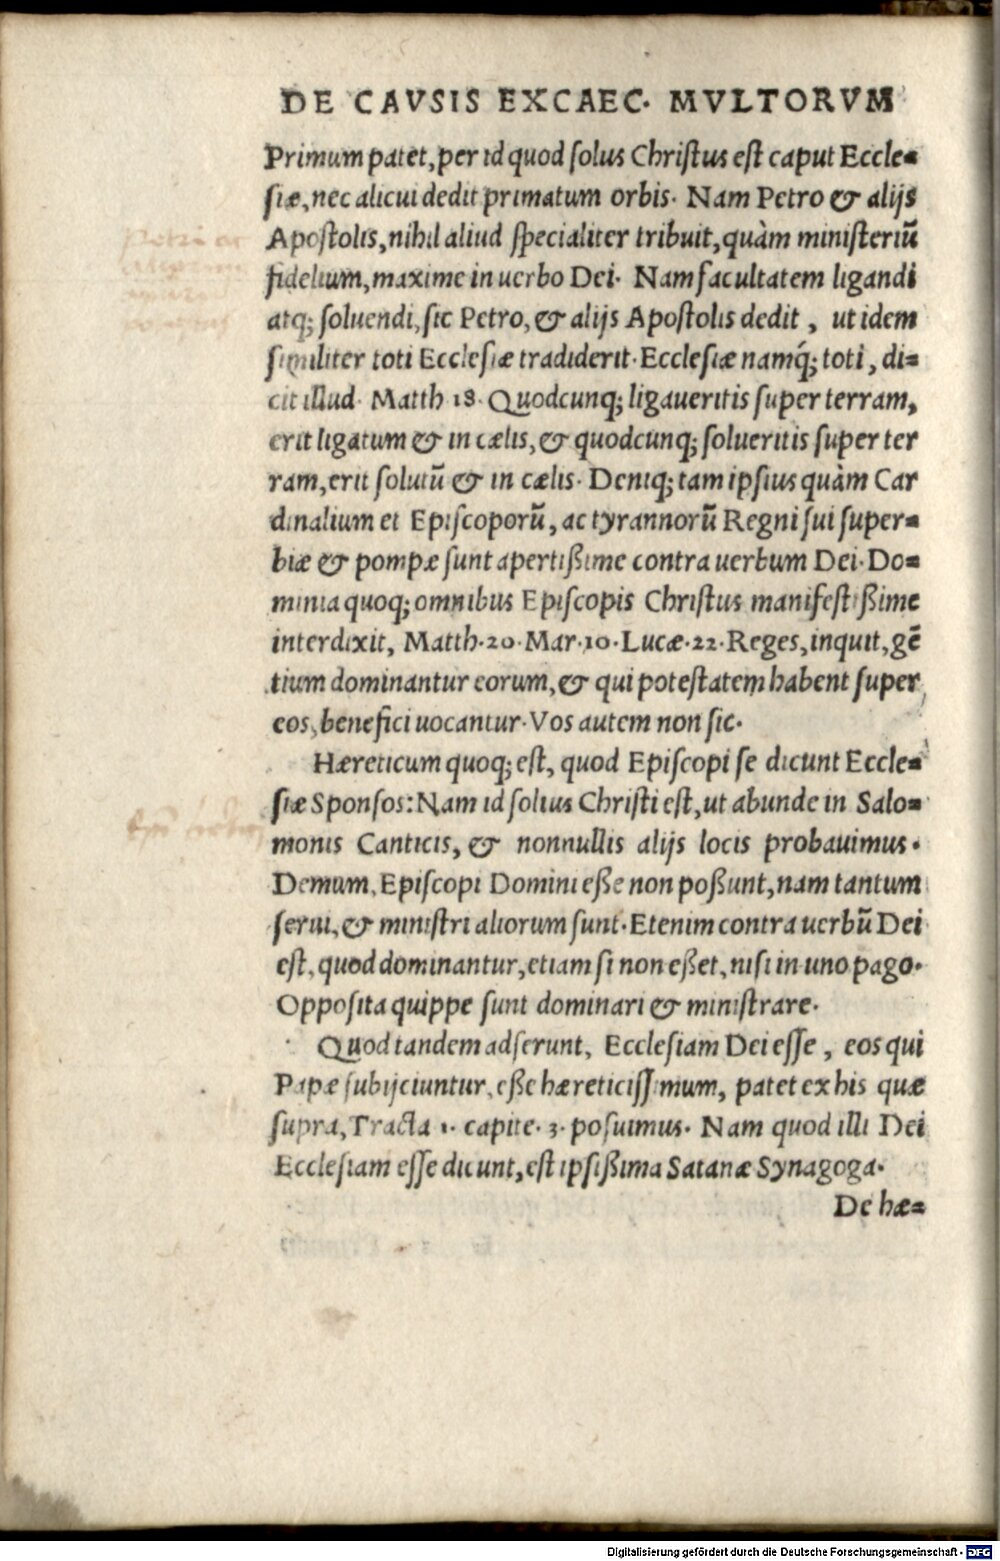 DE CAVSIS EXCAEC. MVLTORVM
Primum patet, per id quod solus Christus est caput Eccle=
siæ, nec alicui dedit primatum orbis. Nam Petro & alijs
Apostolis, nihil aliud specialiter tribuit, quàm ministeriũ
fidelium, maxime in uerbo Dei. Nam facultatem ligandi
atq; soluendi, sic Petro, & alijs Apostolis dedit, ut idem
similiter toti Ecclesiæ tradiderit. Ecclesiæ namq́; toti, di=
cit illud. Matth 18. Quodcunq; ligaueritis super terram,
erit ligatum & in cælis, & quodcunq; solueritis super ter
ram, erit solutũ & in cælis. Deniq; tam ipsius quàm Car
dinalium et Episcoporũ, ac tyrannorũ Regni sui super=
biæ & pompæ sunt apertißime contra uerbum Dei. Do=
minia quoq; omnibus Episcopis Christus manifestißime
interdixit, Matth. 20. Mar. 10. Lucæ. 22. Reges, inquit, gẽ
tium dominantur eorum, & qui potestatem habent super
eos, benefici uocantur. Vos autem non sic.
Hæreticum quoq; est, quod Episcopi se dicunt Eccle=
siæ Sponsos: Nam id solius Christi est, ut abunde in Salo=
monis Canticis, & nonnullis alijs locis probauimus.
Demum, Episcopi Domini eße non poßunt, nam tantum
serui, & ministri aliorum sunt. Etenim contra uerbũ Dei
est, quod dominantur, etiam si non eßet, nisi in uno pago.
Opposita quippe sunt dominari & ministrare.
Quod tandem adserunt, Ecclesiam Dei esse, eos qui
Papæ subijciuntur, eße hæreticissimum, patet ex his quæ
supra, Tracta 1. capite. 3. posuimus. Nam quod illi Dei
Ecclesiam esse dicunt, est ipsißima Satanæ Synagoga.
De hæ=
Digitalisierung gefördert durch die Deutsche Forschungsgemeinschaft - DFG